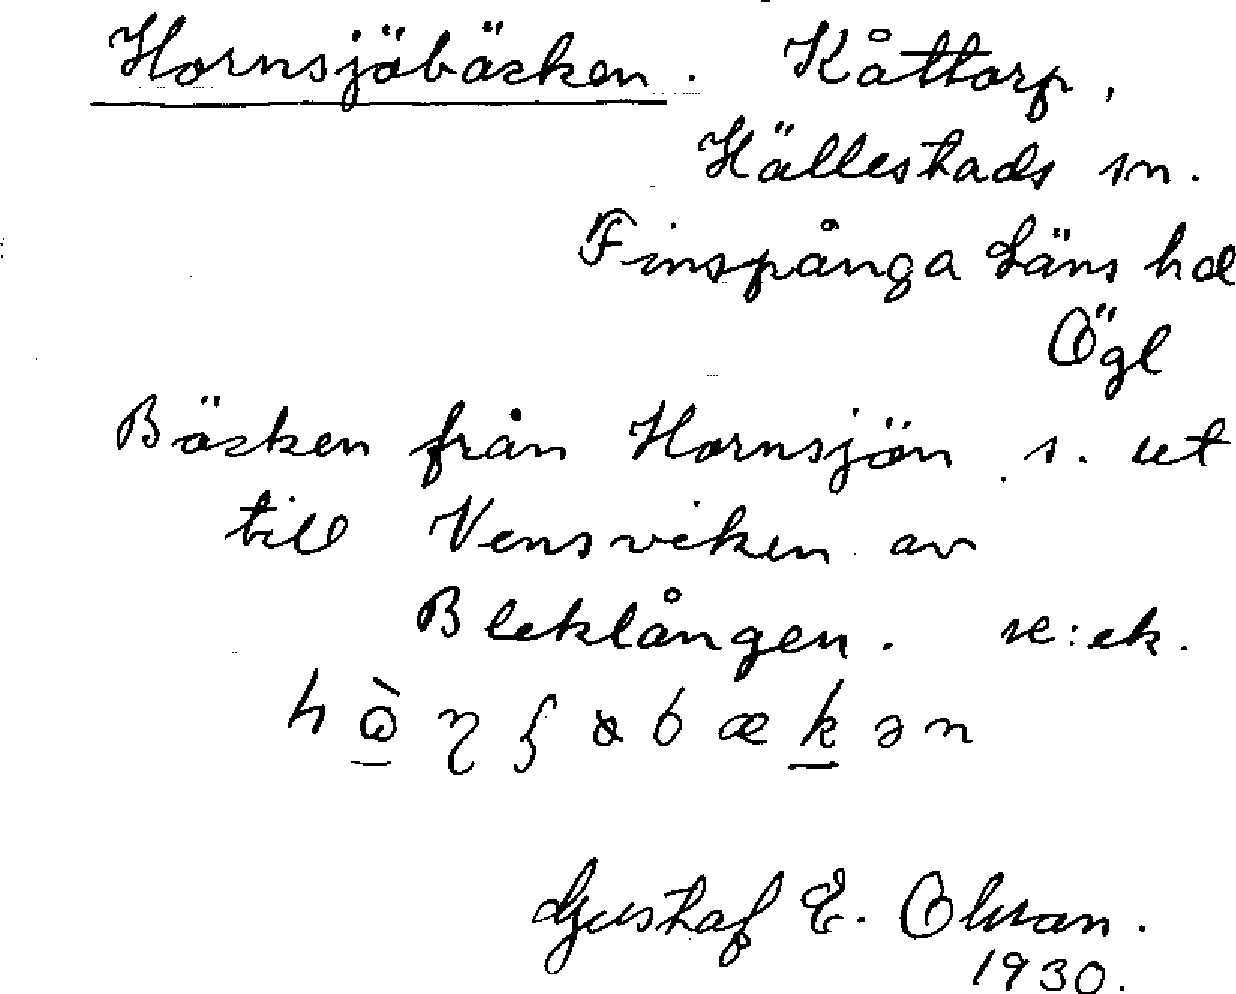 Hornsjöbäcken. Kåttorp,
Hällestads sn.
Finspånga Läns hd
Ögl
Bäcken från Hornsjön s. ut
till Vensviken av
Bleklången. se: ek.
Gustaf E. Olsson.
1930.